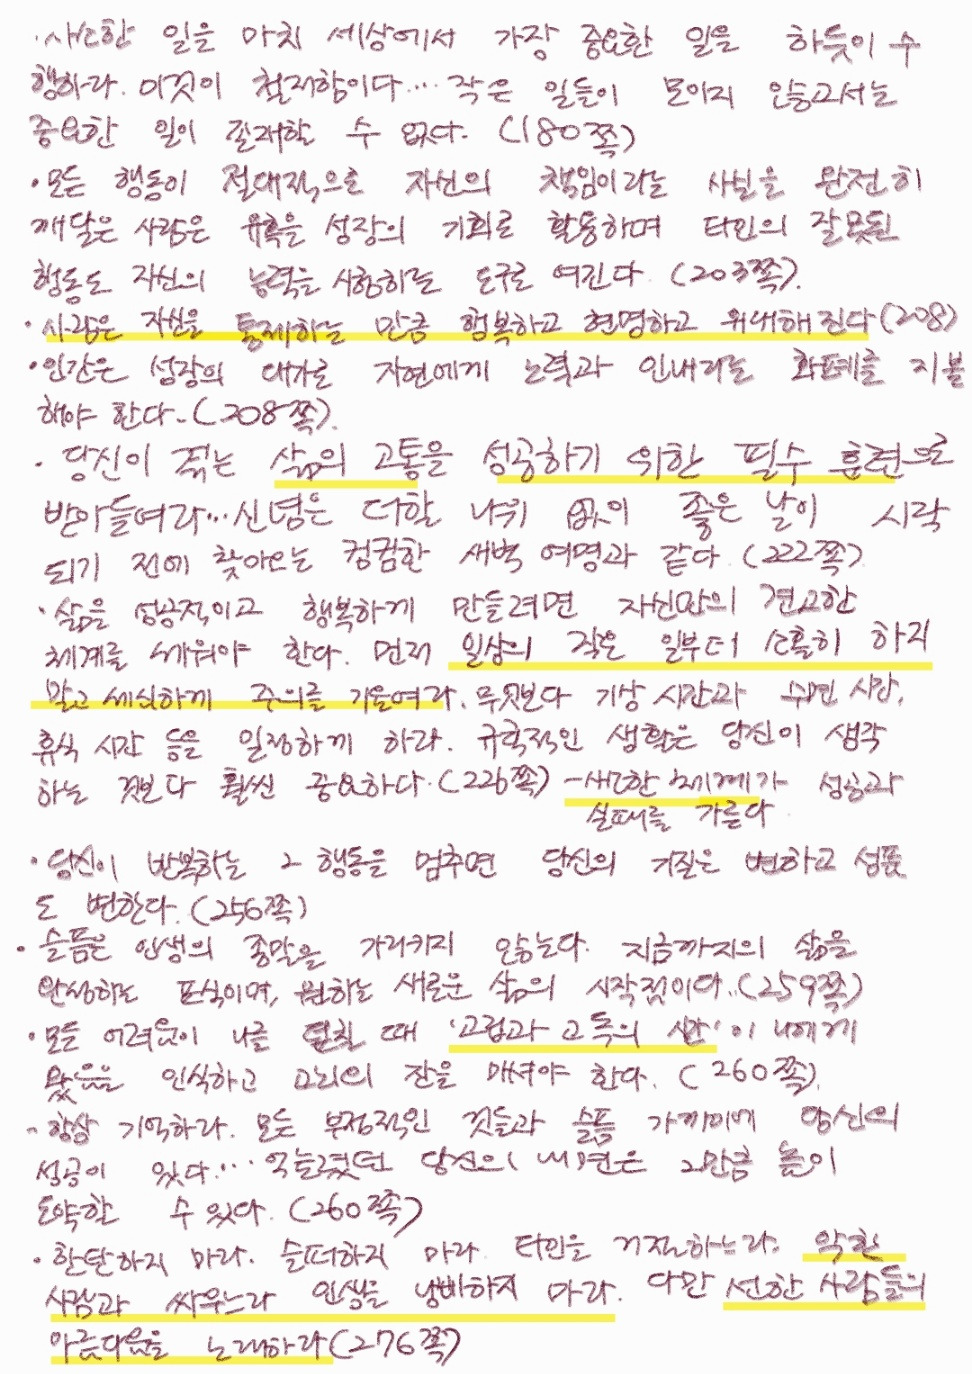 · 사소한 일을 마치 세상에서 가장 중요한 일을 하듯이 수
행하라. 이것이 철저함이다... 작은 일들이 모이지 않고서는
중요한 일이 존재할 수 없다. (180쪽)
· 모든 행동이 절대적으로 자신의 책임이라는 사실을 완전히
깨달은 사람은 유혹을 성장의 기회로 활용하며 타인의 잘못된
행동도 자신의 능력을 시험하는 도구로 여긴다. (203쪽).
· 사람은 자신을 통제하는 만큼 행복하고 현명하고 위대해진다 (208)
· 인간은 성장의 대가로 자연에게 노력과 인내라는 화폐를 지불
해야 한다. (208쪽).
· 당신이 겪는 삶의 고통을 성공하기 위한 필수 훈련으로
받아들여라... 신념은 더할 나위 없이 좋은 날이 시작
되기 전에 찾아오는 컴컴한 새벽 여명과 같다. (222쪽)
· 삶을 성공적이고 행복하게 만들려면 자신만의 견고한
체계를 세워야 한다. 먼저 일상의 작은 일부터 소홀히 하지
말고 세심하게 주의를 기울여라. 무엇보다 기상 시간과 수면 시간,
휴식 시간 등을 일정하게 하라. 규칙적인 생활은 당신이 생각
하는 것보다 훨씬 중요하다. (226쪽) - 사소한 체계가 성공과
실패를 가른다
· 당신이 반복하는 그 행동을 멈추면 당신의 기질은 변하고 성품
도 변한다. (256쪽)
· 슬픔은 인생의 종막을 가리키지 않는다. 지금까지의 삶을
완성하는 표식이며, 원하는 새로운 삶의 시작점이다.. (259쪽)
· 모든 어려움이 나를 덮칠 때 '고립과 고독의 시간'이 내에게
왔음을 인식하고 고뇌의 잔을 마셔야 한다. (260쪽).
- 항상 기억하라. 모든 부정적인 것들과 슬픔 가까이에 당신의
성공이 있다... 억눌렸던 당신의 내면은 그만큼 높이
도약할 수 있다. (260쪽)
· 한탄하지 마라. 슬퍼하지 마라. 타인을 거절하느라, 악한
사람과 싸우느라 인생을 낭비하지 마라. 다만 선한 사람들의
아름다움을 노래하라 (276쪽)